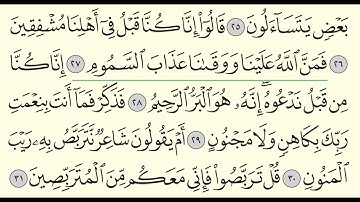 بَعْضٍ يَتَسَآءَلُونَ ٢٥ قَالُوٓا۟ إِنَّا كُنَّا قَبْلُ فِىٓ أَهْلِنَا مُشْفِقِينَ
٢٦ فَمَنَّ ٱللَّهُ عَلَيْنَا وَوَقَىٰنَا عَذَابَ ٱلسَّمُومِ ٢٧ إِنَّا كُنَّا
مِن قَبْلُ نَدْعُوهُ إِنَّهُۥ هُوَ ٱلْبَرُّ ٱلرَّحِيمُ ٢٨ فَذَكِّرْ فَمَآ أَنتَ بِنِعْمَتِ
رَبِّكَ بِكَاهِنٍ وَلَا مَجْنُونٍ ٢٩ أَمْ يَقُولُونَ شَاعِرٌ نَّتَرَبَّصُ بِهِۦ رَيْبَ
ٱلْمَنُونِ ٣٠ قُلْ تَرَبَّصُوا۟ فَإِنِّى مَعَكُم مِّنَ ٱلْمُتَرَبِّصِينَ ٣١